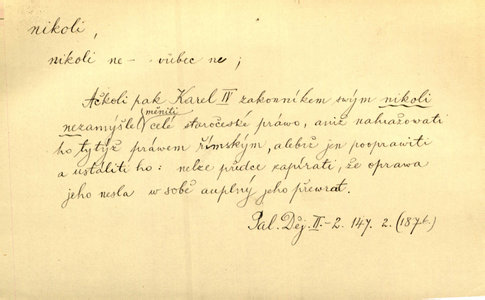 nikoli,
nikoli ne – vůbec ne;
Ačkoli pak Karel IV zakonníkem swým nikoli
nezamýšlel měniti celé staročeské práwo, aniž nahražowati
ho tytýž práwem římským, alebrž jen poopraviti
a ustáliti ho: nelze předce zapírati, že oprawa
jeho nesla w sobě auplný jeho přewrat.
Pal. Děj. II.-2. 147. 2. (1876.)